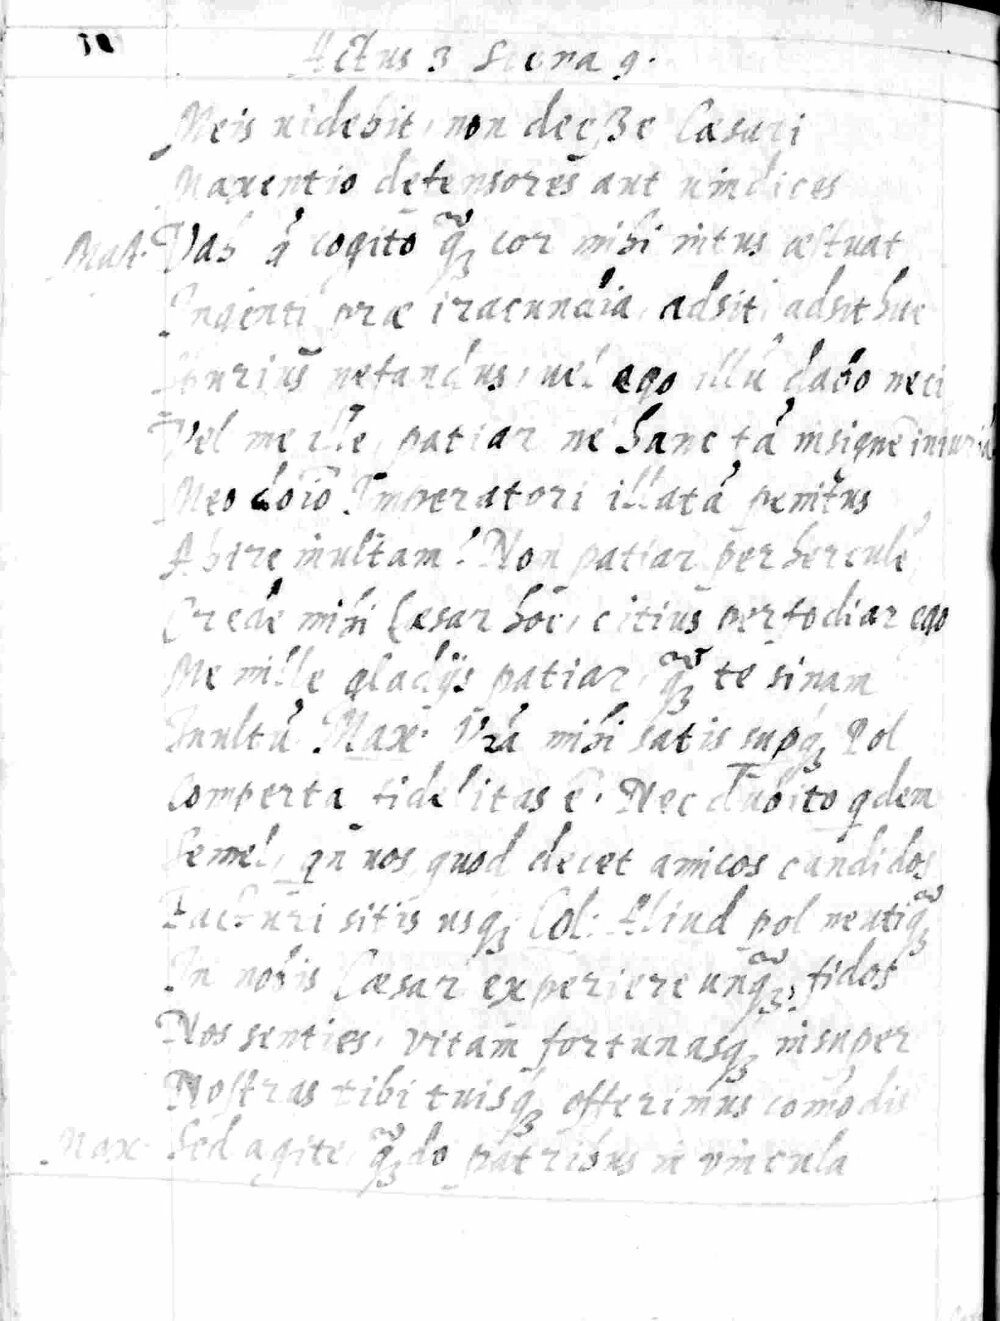 Actus 3 Scena 9.
Meis uidebit, non deesse Cæsari
Maxentio defensores aut uindices
Vah cogito cor mihi intus æstuat
Ingenti præ iracundia, adsit, adsit huc
nefandus, uel ego illū dabo neci
Vel me ille, patiar ne hanc tā insignē iniuriā
Meo dōio Imperatori illatā penitus
Abire inultam! Non patiar per hercule,
Crede mihi Cæsar hoc, citius perfodiar ego
Me mille gladijs patiar, qꝫ te sinam
Inultū Max. Vrā mihi satis supqꝫ Pol
Comperta fidelitas ē. Nec dubito qdem
Semel, qn uos quod decet amicos candidos
Facturi sitis usqꝫ Col: Aliud pol neutiqꝫ
In nobis Cæsar experiere unqꝫ, fidos
Nos senties, vitam fortunasqꝫ insuper
Nostras tibi tuisqꝫ offerimus com̄odis
Max Sed agite, qꝫdo patribus in vincula